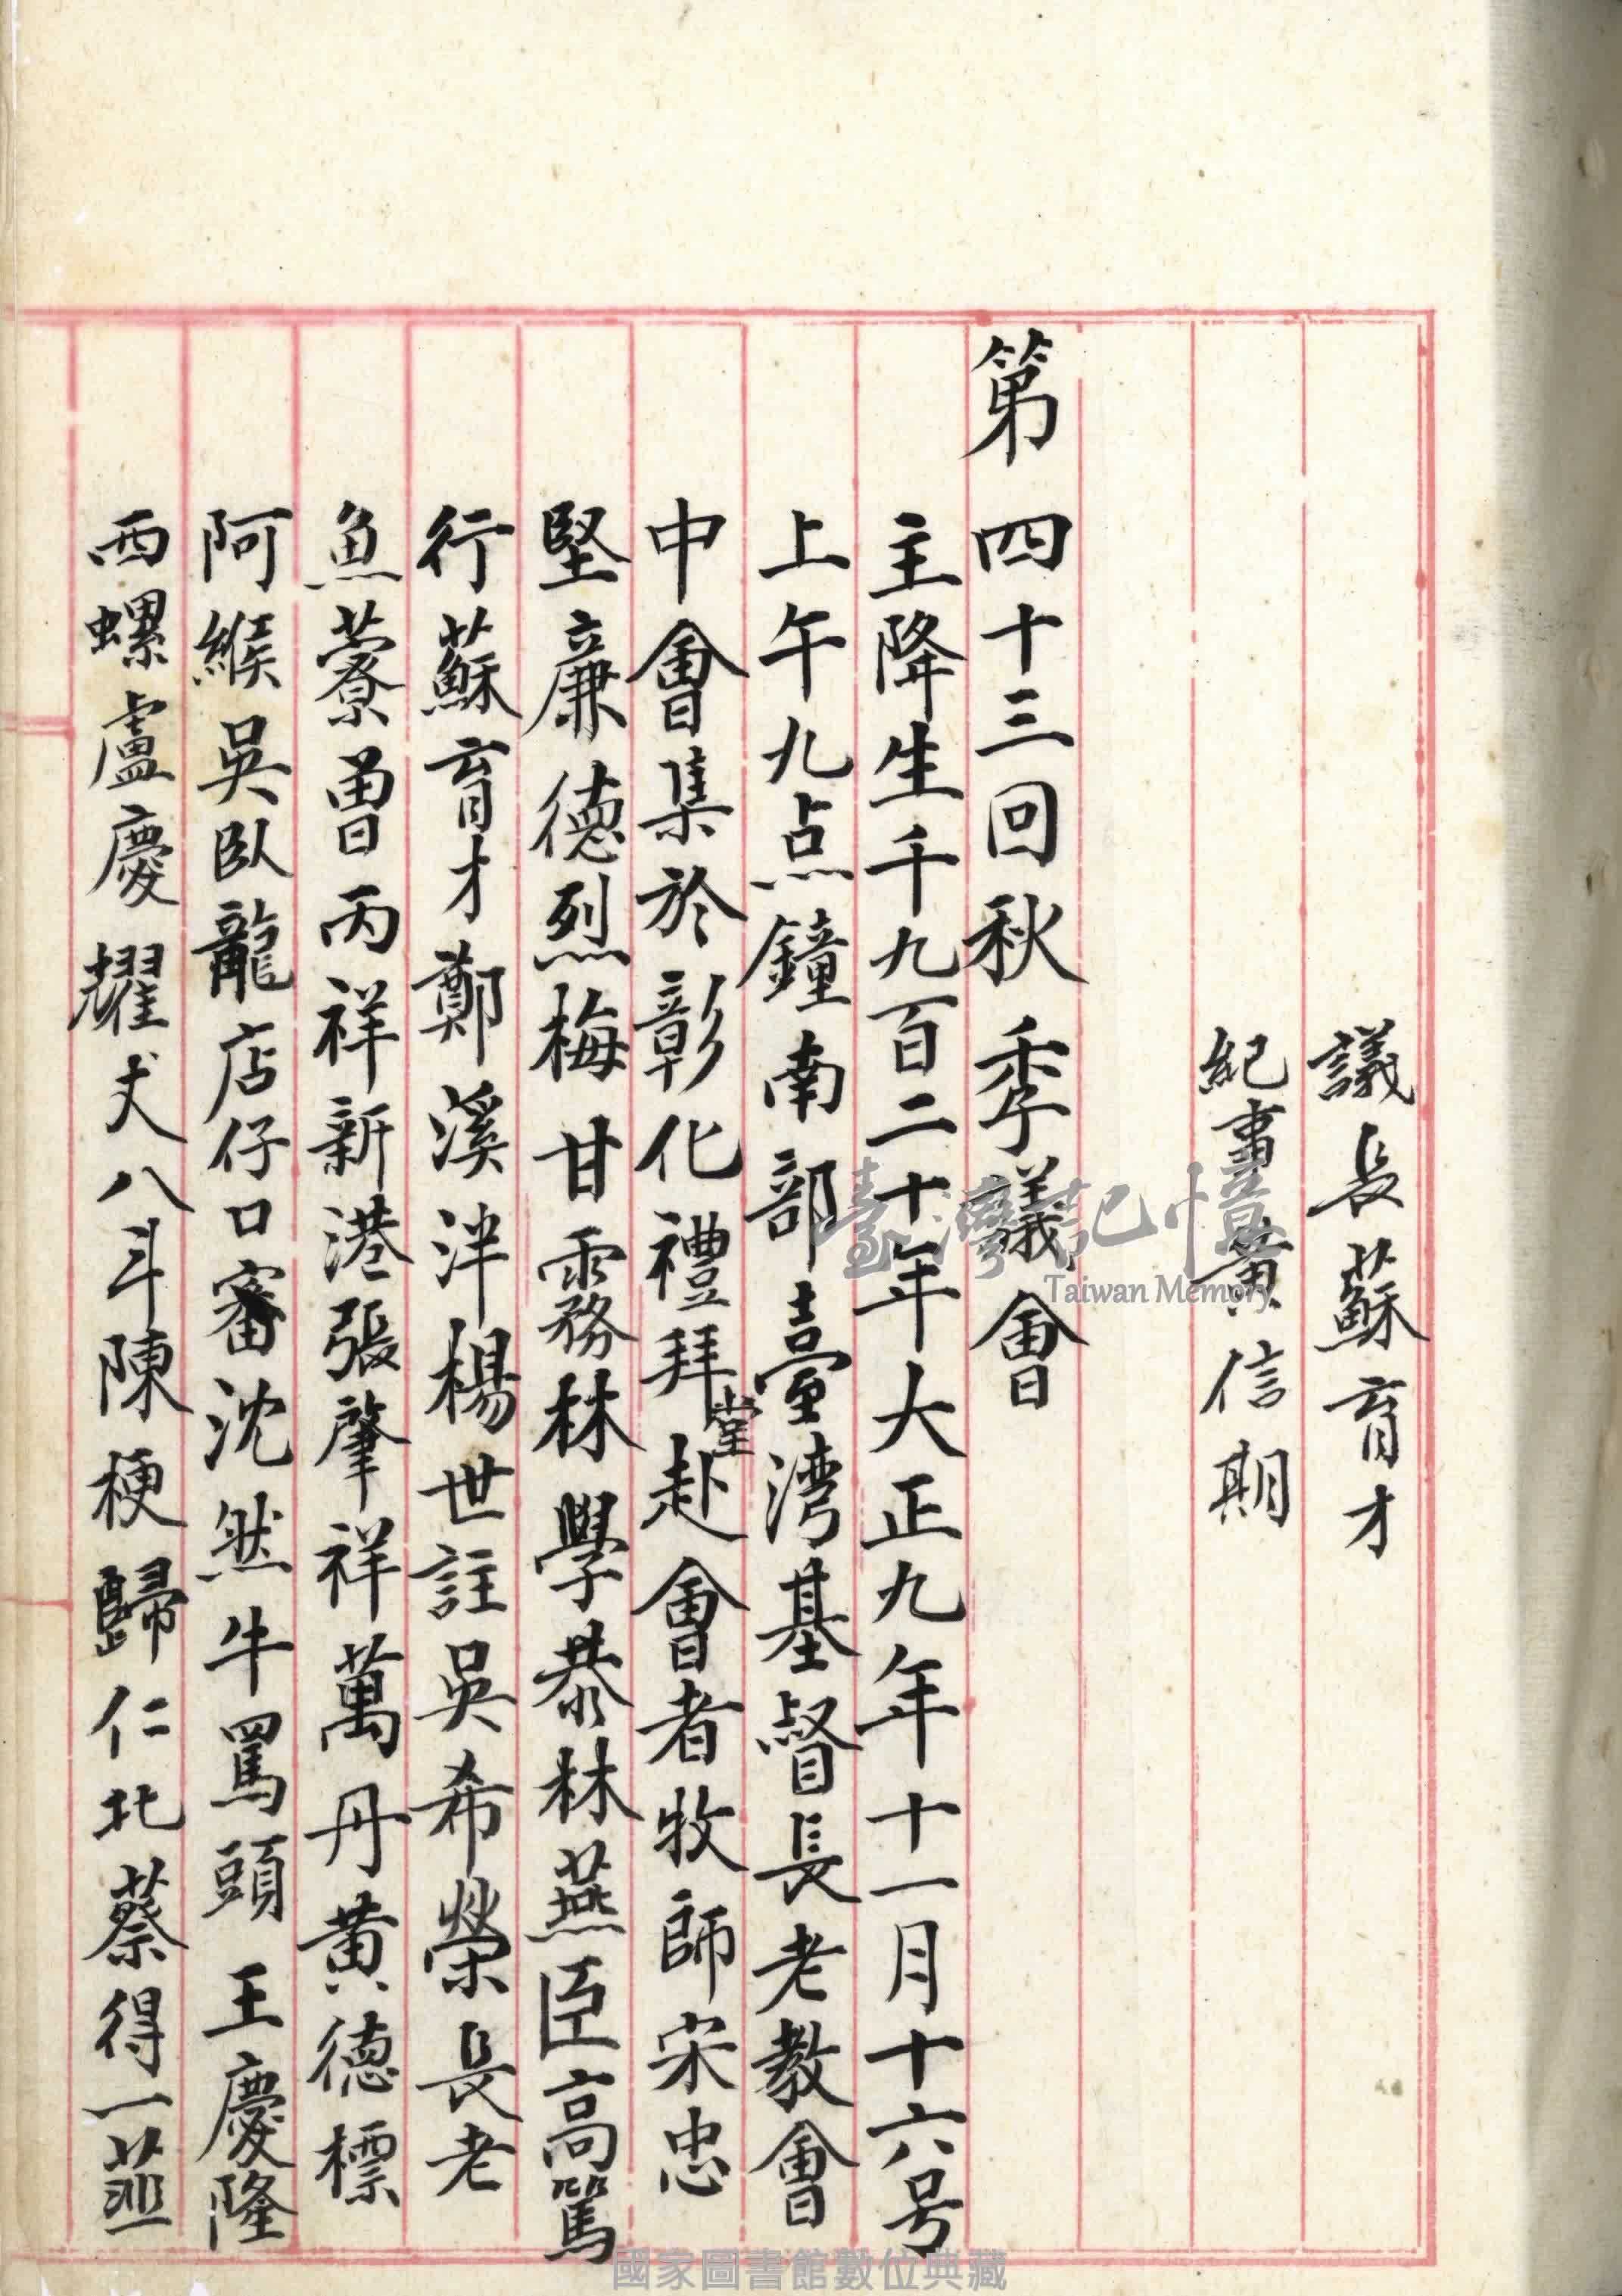 議長蘇育才
紀事黃信期
第四十三回秋季議會
主降生千九百二十年大正九年十一月十六号
上午九点鐘南部臺湾基督長老教會
中會集於彰化禮拜堂赴會者牧師宋忠
堅廉德烈梅甘霧林學恭林燕臣高篤
行蘇育才鄭溪泮楊世註吳希榮長老
魚藔曾丙祥新港張肇祥萬丹黃德標
阿緱吳臥龍店仔口審沈然牛罵頭王慶隆
西螺盧慶耀丈八斗陳梗歸仁北蔡得一韮
臺灣記憶
Taiwan Memory
國家圖書館數位典藏